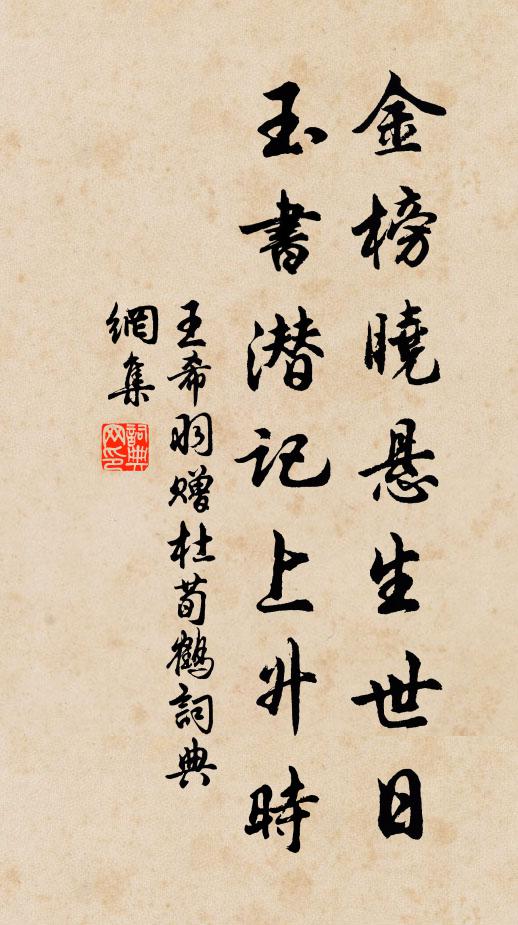 金榜曉懸生世日
玉書潜記上升時
王希羽贈杜荀鶴詞典
網集
詞典
网印